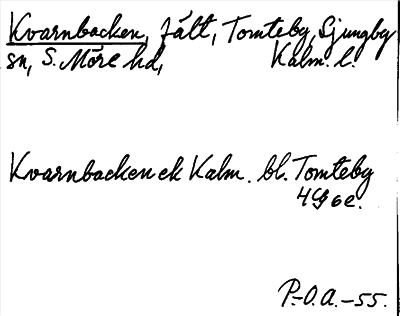 Kvarnbacken, fält, Tomteby, Ljungby
sn, S. Möre hd, Kalm. l.
Kvarnbacken ek Kalm. bl. Tomteby
4G6e.
P.-O.A.-55.